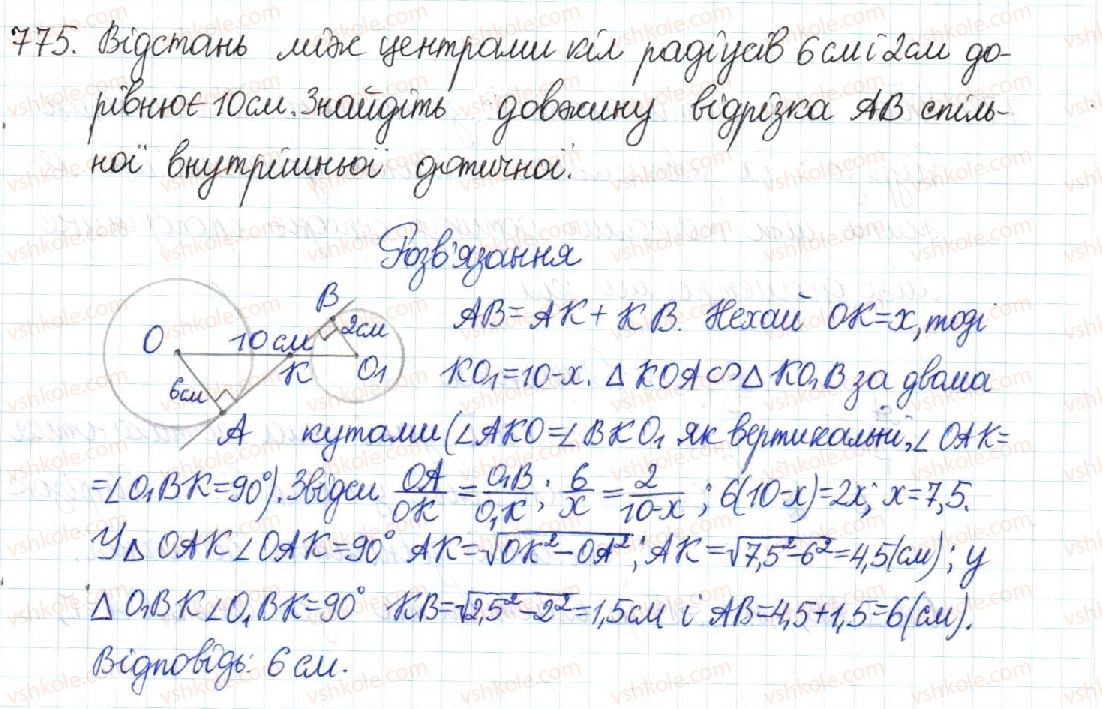 775. Відстань між центрами кіл радіусів 6 см і 2 см до-
рівнює 10 см. Знайдіть довжину відрізка AB спіль-
ної внутрішньої дотичної.
Розв'язання
B
2см
O 10 см
K O₁
6см
A
AB = AK + KB. Нехай OK = x, тоді
KO₁ = 10-x. △ KOA ∽ △ KO₁B за двома
кутами (∠AKO = ∠BKO₁ як вертикальні, ∠OAK =
= ∠O₁BK = 90°). Звідси OA/OK = O₁B/O₁K; 6/x = 2/10-x; 6(10-x) = 2x; x = 7,5.
У △ OAK ∠OAK = 90° AK = √OK² - OA²; AK = √7,5² - 6² = 4,5 (см); у
△ O₁BK ∠O₁BK = 90° KB = √2,5² - 2² = 1,5 см і AB = 4,5 + 1,5 = 6 (см).
Відповідь: 6 см.
vshkole.com